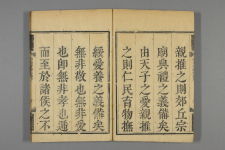 親推之則郊丘宗
廟典禮之義備矣
由天子之愛親推
之則仁民育物撫
綏愛養之義備矣
無非敬也無非愛
也即無非孝也通
而至於諸侯之不